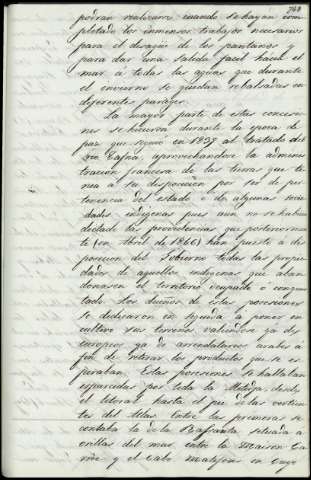 podran realizarse cuando se hayan com
pletado los inmensos trabajos necesarios
para el desagüe de los pantanos y
para dar una salida facil hácia el
mar á todas las aguas que durante
el invierno se quedan rebalsadas en
diferentes parages.
La mayor parte de estas concesio
nes se hicieron durante la época de
paz que siguió en 1837 al tratado del
rio Tafna, aprovechandose la adminis
tración francesa de las tierras que te
nia á su disposicion por ser de per
tenencia del estado ó de algunas socie
dades indígenas pues aun no se habian
dictado las providencias que posteriormen
te (en Abril de 1840) han puesto á dis
posicion del Gobierno todas las propie
dades de aquellos indígenas que aban
donasen el territorio ocupado ó conquis
tado. Los dueños de estas posesiones
se dedicaron en seguida á poner en
cultivo sus terrenos valiendose ya de
europeos ya de arrendatarios árabes á
fin de retirar los productos que se es
peraban. Estas posesiones se hallaban
esparcidas por toda la Metidja desde
el litoral hasta el pie de las vertien
tes del Atlas. Entre las primeras se
contaba la de la Rassauta situada á
orillas del mar, entre la Maison Ca
rrée y el Cabo Matifou en cuyo